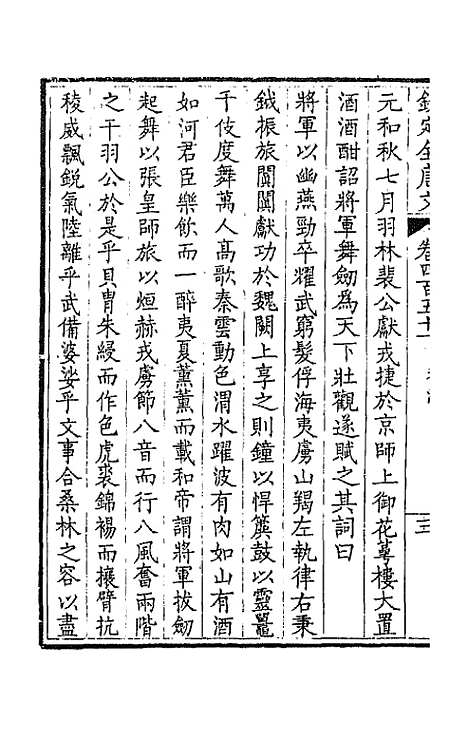 欽定全唐文 卷四百五十一
元和秋七月羽林裴公獻戎捷於京師上御花萼樓大置
酒酒酣詔將軍舞劒為天下壯觀遂賦之其詞曰
將軍以幽燕勁卒耀武窮髮俘海夷虜山羯左執律右秉
鉞振旅闐闐獻功於魏闕上享之則鐘以悍簴鼓以靈鼉
千伎度舞萬人高歌秦雲動色渭水躍波有肉如山有酒
如河君臣樂飲而一醉夷夏薰薰而載和帝謂將軍拔劒
起舞以張皇師旅以烜赫戎虜節八音而行八風奮兩階
之干羽公於是乎貝冑朱綅而作色虎裘錦裼而攘臂抗
稜威飄銳氣陸離乎武備婆娑乎文事合桑林之容以盡